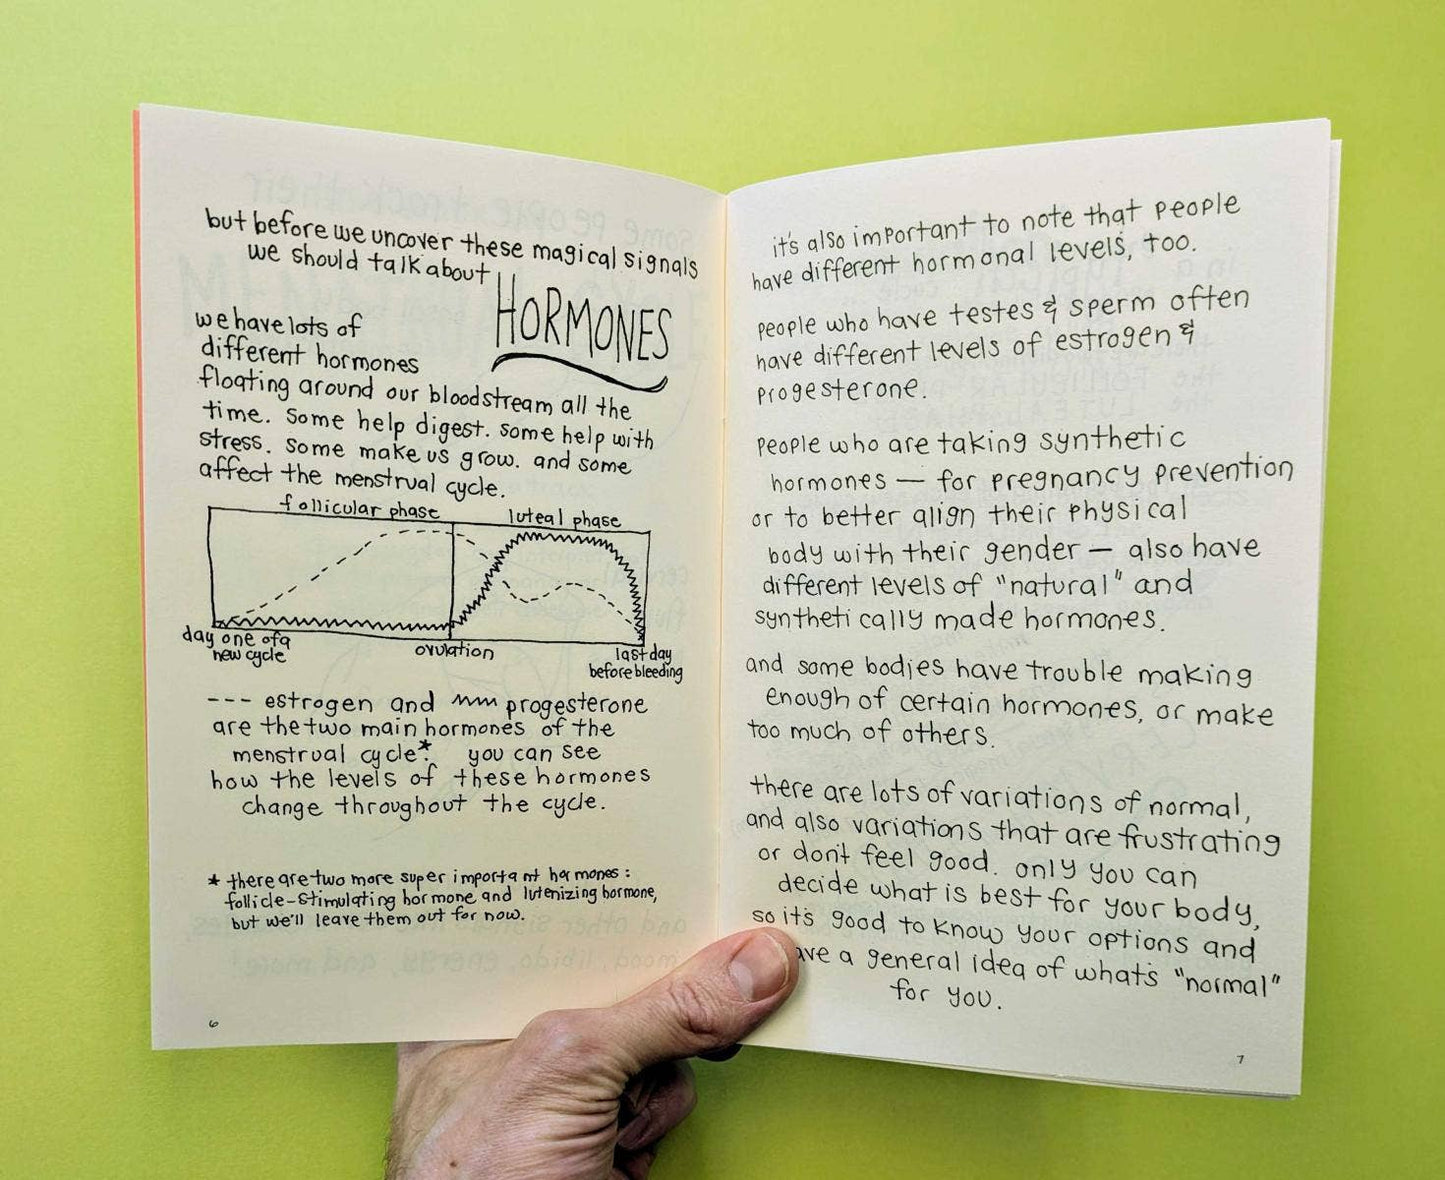 but before we uncover these magical signals
we should talk about
HORMONES
we have lots of
different hormones
floating around our bloodstream all the
time. some help digest. some help with
stress. some make us grow. and some
affect the menstrual cycle.
follicular phase
luteal phase
day one of a
new cycle
ovulation
last day
before bleeding
--- estrogen and progesterone
are the two main hormones of the
menstrual cycle*. you can see
how the levels of these hormones
change throughout the cycle.
* there are two more super important hormones:
follicle-stimulating hormone and lutenizing hormone,
but we'll leave them out for now.
6
it's also important to note that people
have different hormonal levels, too.
people who have testes & sperm often
have different levels of estrogen &
progesterone.
people who are taking synthetic
hormones — for pregnancy prevention
or to better align their physical
body with their gender — also have
different levels of "natural" and
synthetically made hormones.
and some bodies have trouble making
enough of certain hormones, or make
too much of others.
there are lots of variations of normal,
and also variations that are frustrating
or don't feel good. only you can
decide what is best for your body,
so it's good to know your options and
ave a general idea of what's "normal"
for you.
7